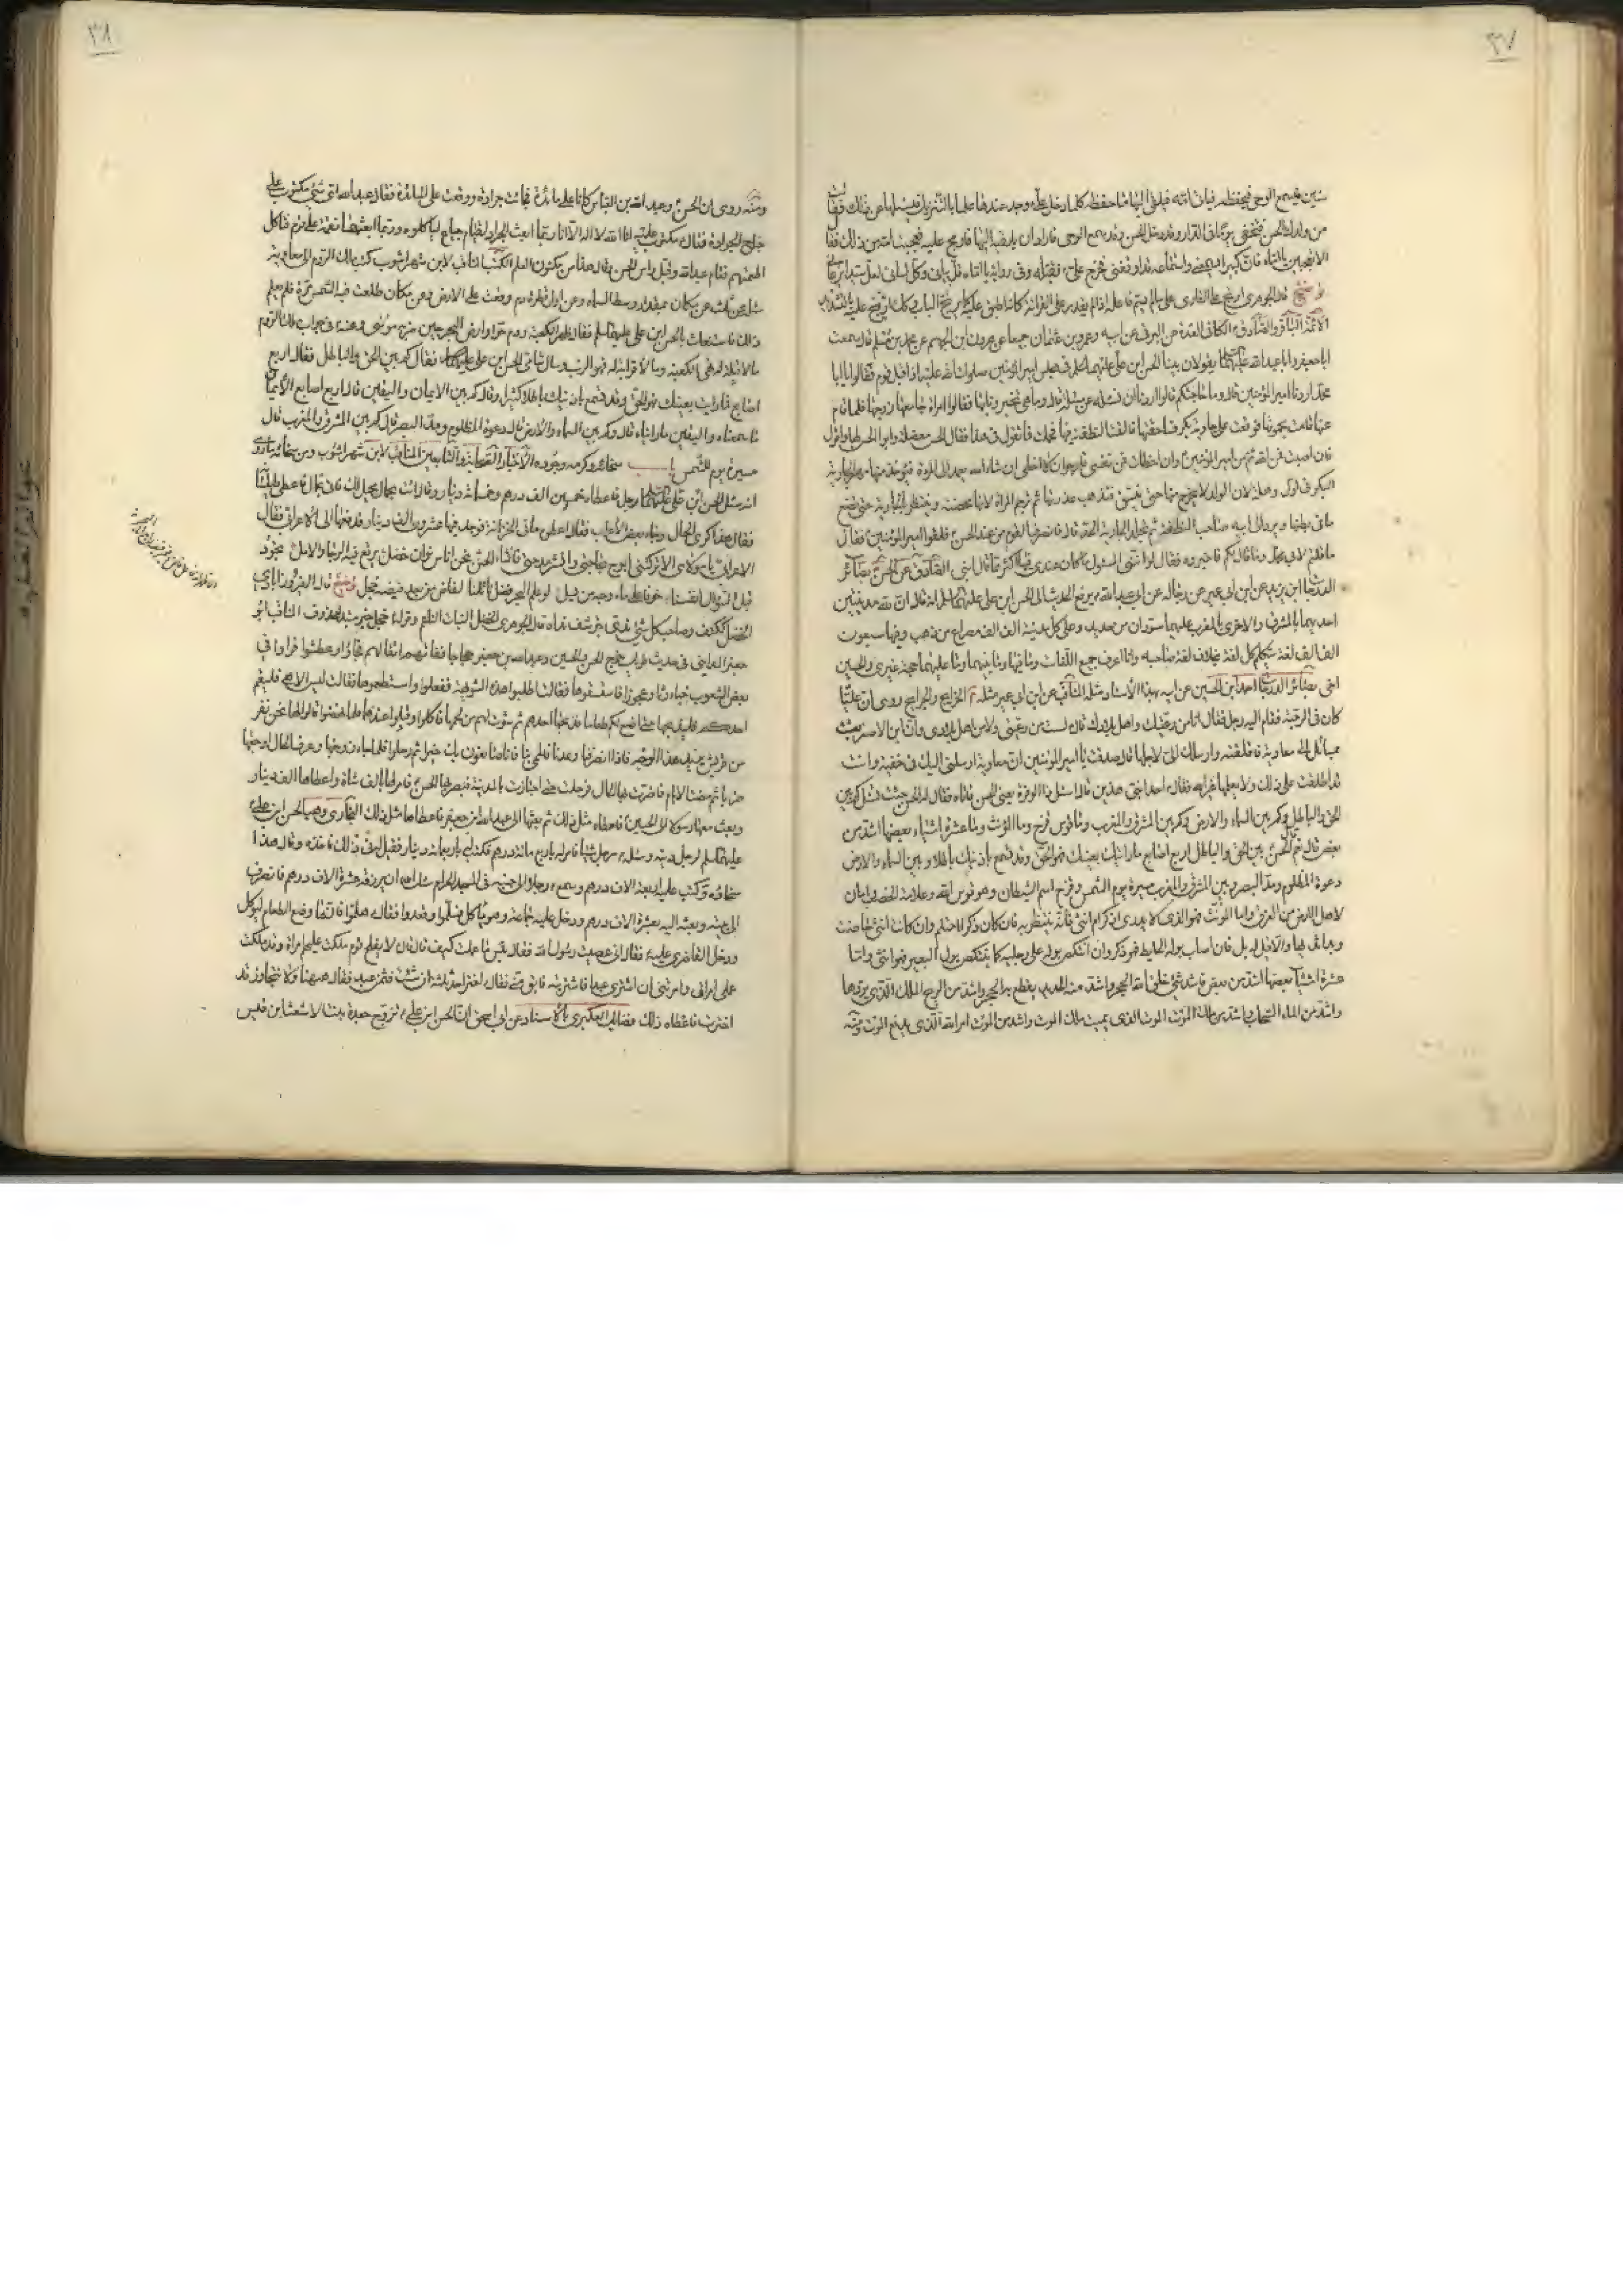 ٣٧
سنين فيسمع الوحي فيحفظه فياتي امّه فيلقي اليها ما حفظه كلما دخل علي ع وجد عندها علما بالتنزيل فيسئلها عن ذلك فقالت
من ولدك الحسن فتخفى يوما في الدار وقد دخل الحسن وقد سمع الوحي فاراد ان يلقيه اليها فارتج عليه فعجبت امه من ذلك فقال
لا تعجبين يا امّاه فان كبيرا يسمعني واستماعه قد اوقفني فخرج علي ع فقبّله وفي رواية يا امّاه قلّ بياني وكلّ لساني لعلّ سيدا يرعاني
توضيح قال الجوهري ارتج على القاري على ما لم يسم فاعله اذا لم يقدر على القرائة كانه اطبق عليه كما يرتج الباب
الائمة الباقر والصادق ع الكافي العدة عن البرقي عن ابيه وعمرو بن عثمان جميعا عن هرون ابن الجهم عن محمد بن مسلم قال سمعت
ابا جعفر وابا عبد الله عليهما السلام يقولان بينا الحسن ابن علي عليهما السلام في مجلس امير المؤمنين صلوات الله عليه اذ اقبل قوم فقالوا يا ابا
محمد اردنا امير المؤمنين قال وما حاجتكم قالوا اردنا ان نسئله عن مسئلة قال وما هي تخبرونا بها فقالوا امراة جامعها زوجها فلما قام
عنها قامت بحموتها فوقعت على جارية بكر فساحقتها فالقت النطفة فيها فحملت فما تقول في هذا فقال الحسن معضلة وابو الحسن لها واقول
فان اصبت فمن الله ثم من امير المؤمنين ع وان اخطات فمن نفسي فارجو ان لا اخطي ان شاء الله يعمد الى المراة فيؤخذ منها مهر الجارية
البكر في اول وهلة لان الولد لا يخرج منها حتى يشق فتذهب عذرتها ثم ترجم المراة لانها محصنة وينتظر بالجارية حتى تضع
ما في بطنها ويرد الى ابيه صاحب النطفة ثم تجلد الجارية الحد قال فانصرف القوم من عند الحسن ع فلقوا امير المؤمنين ع فقال
ما قلتم لابي محمد وما قال لكم فاخبروه فقال لو انني المسئول ما كان عندي فيها اكثر مما قال ابني الصادق عن الحسن ع بصائر
الدرجات ابن يزيد عن ابن ابي عمير عن رجاله عن ابي عبد الله ع يرفع الحديث الى الحسن ابن علي عليهما السلام انه قال ان لله مدينتين
احديهما بالمشرق والاخرى بالمغرب عليهما سوران من حديد وعلى كل مدينة الف الف مصراع من ذهب وفيها سبعون
الف الف لغة يتكلم كل لغة بخلاف لغة صاحبه وانا اعرف جميع اللغات وما فيها وما بينهما وما عليهما حجة غيري والحسين
اخي بصائر الدرجات احمد ابن الحسين عن ابيه بهذا الاسناد مثله المناقب عن ابن ابي عمير مثله الخرايج والجرايح روى ان عليّا
كان في الرحبة فقام اليه رجل فقال انا من رعيتك واهل بلادك قال لست من رعيتي ولا من اهل بلادي وان ابن الاصفر بعث
بمسائل الى معاوية فاقلقته وارسلك الي لاجلها قال صدقت يا امير المؤمنين ان معاوية ارسلني اليك في خفية وانت
قد اطلعت على ذلك ولا يعلمها غير الله فقال ع سل احد ابني هذين قال اسئل ذا الوفرة يعني الحسن فاتاه فقال له الحسن جئت تسئل كم بين
الحق والباطل وكم بين السماء والارض وكم بين المشرق والمغرب وما قوس قزح وما المؤنث وما عشرة اشياء بعضها اشد من
بعض قال نعم قال الحسن ع بين الحق والباطل اربع اصابع ما رايته بعينك فهو الحق وقد تسمع باذنيك باطلا وبين السماء والارض
دعوة المظلوم ومدّ البصر وبين المشرق والمغرب مسيرة يوم الشمس وقزح اسم الشيطان وهو قوس الله وعلامة الخصب وامان
لاهل الارض من الغرق واما المؤنث فهو الذي لا يدرى اذكر ام انثى فانه ينتظر به فان كان ذكرا احتلم وان كانت انثى حاضت
وبدا ثديها والا قيل له بل فان اصاب بوله الحايط فهو ذكر وان انتكص بوله على رجليه كما ينتكص بول البعير فهو انثى واما
عشرة اشياء بعضها اشد من بعض فاشد شيء خلق الله الحجر واشد منه الحديد يقطع به الحجر
واشد من الملك الموت الذي يميت ملك الموت واشد من الموت امر الله الذي يدفع الموت ومنه
٣٨
ومنه روى ان الحسن ع وعبد الله بن العباس كانا على مائدة فجائت جرادة ووقعت على المائدة فقال عبد الله اي شيء مكتوب على
جناح الجرادة فقال مكتوب عليه انا الله لا اله الا انا ربما ابعث الجراد لقوم جياع لياكلوه وربما ابعثها نقمة على قوم فتاكل
اطعمتهم فقام عبد الله وقبل راس الحسن وقال هذا من مكنون العلم الكتب المناقب لابن شهراشوب كتب ملك الروم الى معاوية
يسئله عن ثلث عن مكان بمقدار وسط السماء وعن اول قطرة دم وقعت على الارض وعن مكان طلعت فيه الشمس مرة فلم يعلم
ذلك فاستغاث بالحسن ابن علي عليهما السلام فقال ظهر الكعبة ودم حوا وارض البحر حين ضربه موسى وعنه ع في جواب ملك الروم
ما لا قبلة له فهي الكعبة وما لا قرابة له فهو الرب وسال شامي الحسن ابن علي عليهما السلام فقال كم بين الحق والباطل فقال اربع
اصابع فما رايت بعينك فهو الحق وقد تسمع باذنيك باطلا كثيرا وقال كم بين الايمان واليقين قال اربع اصابع الايمان
ما سمعناه واليقين ما رايناه قال وكم بين السماء والارض قال دعوة المظلوم ومدّ البصر قال كم بين المشرق والمغرب قال
مسيرة يوم للشمس باب سخائه وكرمه وجوده ع الاخبار الصحابة والتابعين المناقب لابن شهراشوب ومن سخائه ع ما روي
انه سئل الحسن ابن علي عليهما السلام رجل فاعطاه خمسين الف درهم وخمسمائة دينار وقال ائت بحمال يحمل لك فاتى بحمال فاعطى طيلسانه
فقال هذا كرى الحمال وجاءه بعض الاعراب فقال اعطوه ما في الخزانة فوجد فيها عشرون الف دينار فدفعها الى الاعرابي فقال
الاعرابي يا مولاي الا تركتني ابوح بحاجتي وانشر مدحتي فانشاء الحسن ع نحن اناس نوالنا خضل يرتع فيه الرجاء والامل تجود
قبل السؤال انفسنا خوفا على ماء وجه من يسل لو علم البحر فضل نائلنا لفاض من بعد فيضه خجل توضيح قال الفيروزابادي
الخضل ككتف وصاحب كل شيء ندي يترشف نداه المناقب ابو
جعفر المدايني في حديث طويل خرج الحسن والحسين وعبد الله بن جعفر حجاجا ففاتهم اثقالهم فجاعوا وعطشوا فراوا في
بعض الشعوب خباء رثا وعجوزا فاستسقوها فقالت اطلبوا هذه الشويهة ففعلوا واستطعموها فقالت ليس الا هي فليقم
احدكم فليذبحها حتى اصنع لكم طعاما فذبحها احدهم ثم شوت لهم من لحمها فاكلوا وقيلوا عندها فلما نهضوا قالوا لها نحن نفر
من قريش نريد هذا الوجه فاذا انصرفنا وعدنا فالمي بنا فانا صانعون بك خيرا ثم رحلوا فلما جاء زوجها وعرف الحال اوجعها
ضربا ثم مضت الايام فاضرت بها الحال فرحلت حتى اجتازت بالمدينة فبصر بها الحسن ع فامر لها بالف شاة واعطاها الف دينار
وبعث معها رسولا الى الحسين ع فاعطاها مثل ذلك ثم بعثها الى عبد الله ابن جعفر فاعطاها مثل ذلك البخاري وهب الحسن ابن علي
عليهما السلام لرجل ديته وسئله ع رجل شيئا فامر له باربع مائة درهم فكتب له باربعمائة دينار فقيل له في ذلك فاخذه وقال هذا
سخاؤه وكتب عليه باربعة الاف درهم وسمع ع رجلا الى جنبه في المسجد الحرام يسئل الله ان يرزقه عشرة الاف درهم فانصرف
الى بيته وبعث اليه بعشرة الاف درهم ودخل عليه جماعة وهو ياكل فسلموا وقعدوا فقال ع هلموا فانما وضع الطعام ليؤكل
ودخل الغاضري عليه ع فقال اني عصيت رسول الله فقال بئس ما عملت كيف قال قال لا يفلح قوم ملكت عليهم امراة وقد ملكت
علي امراتي وامرتني ان اشتري عبدا فاشتريته فابق مني فقال ع اختر احد ثلثة ان شئت فثمن عبد فقال ههنا ولا تتجاوز قد
اخترت فاعطاه ذلك فضائل العكبري بالاسناد عن ابي اسحق ان الحسن ابن علي ع تزوج جعدة بنت الاشعث ابن قيس